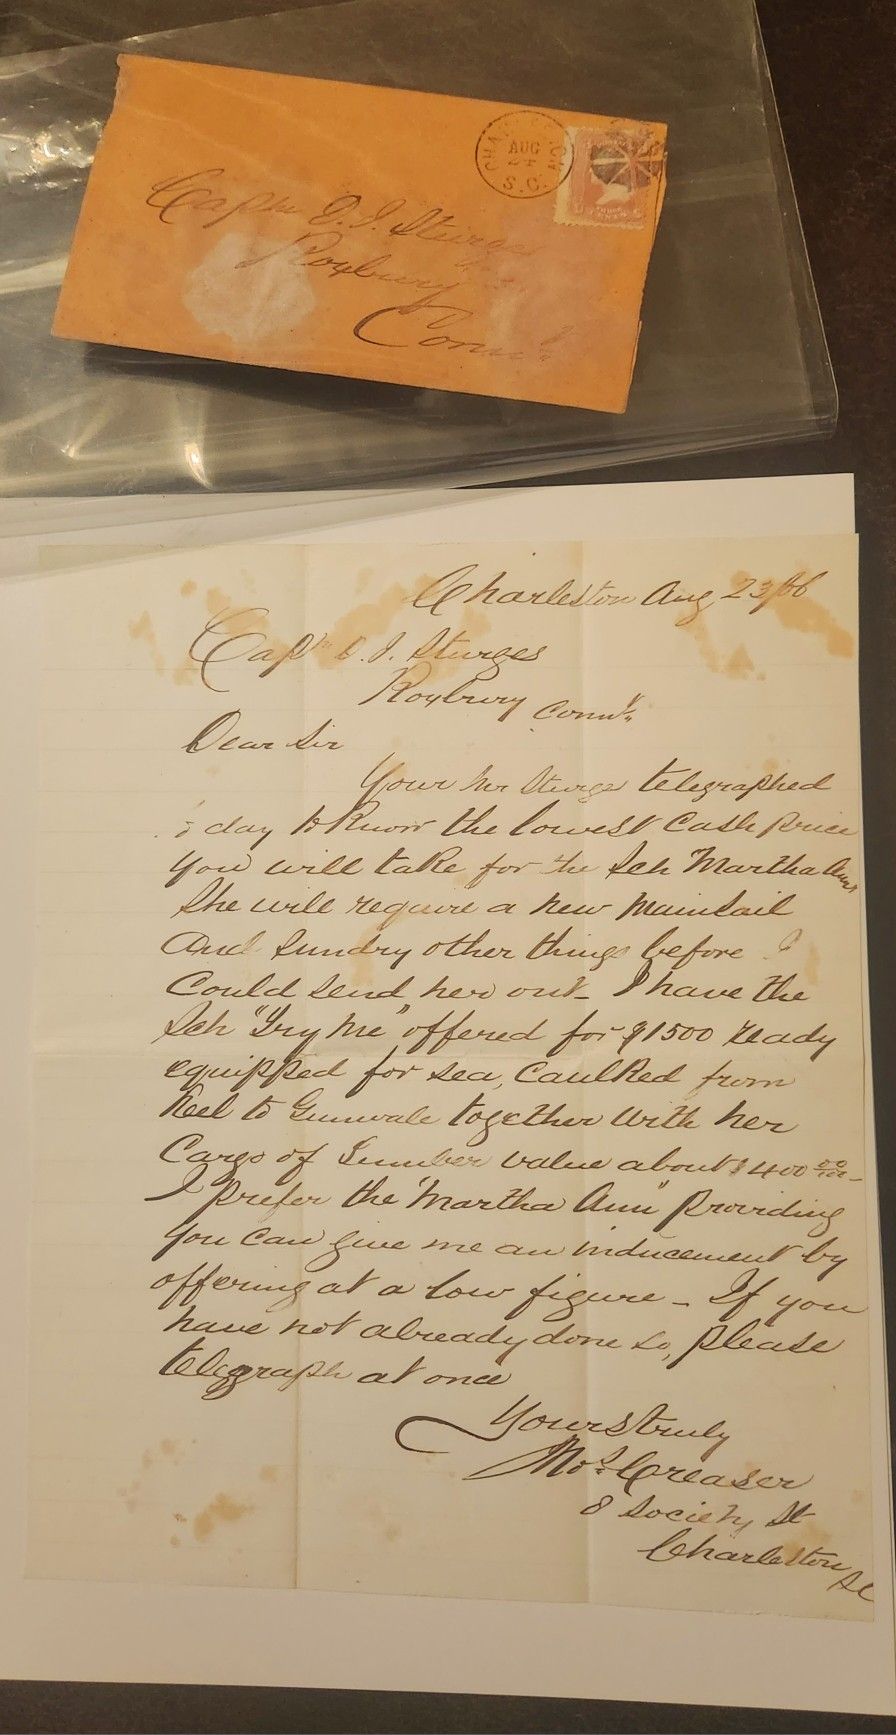 CHARLESTON
AUG
24
S.C.
Capt D. J. Sturges
Roxbury
Conn
Charleston Aug 23/66
Capt D. J. Sturges
Roxbury Conn
Dear Sir
Your Sturges telegraphed
day to Know the lowest Cash price
you will take for the Sch "Martha Ann"
She will require a new Mainsail
And Sundry other things before I
Could send her out - I have the
Sch "Try Me" offered for $1500 ready
equipped for sea, Caulked from
Keel to Gunwale together with her
Cargo of Lumber value about $400 00/100 -
I prefer the "Martha Ann" providing
you can give me an inducement by
offering at a low figure - If you
have not already done so, please
telegraph at once
Yours truly
Mos. Creaser
8 Society St
Charleston SC